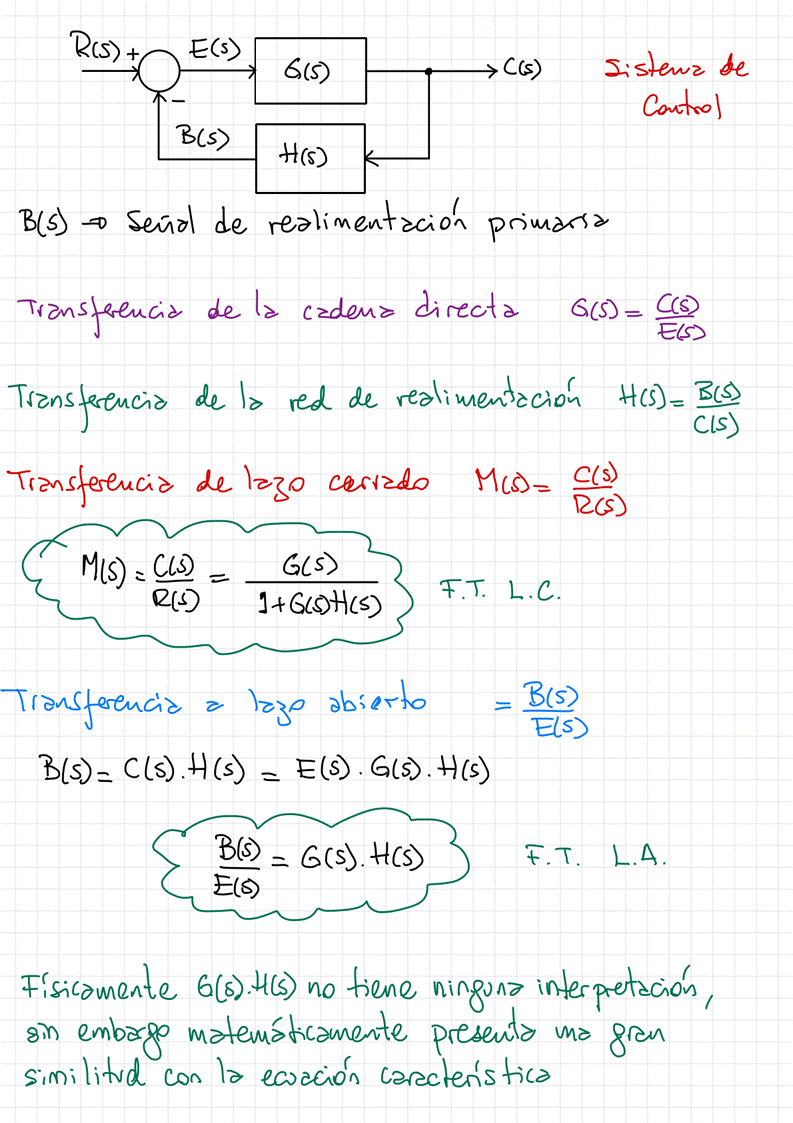 R(s) + E(s) G(s) C(s) Sistema de
Control
-
B(s) H(s)
B(s) ⇒ Señal de realimentación primaria
Transferencia de la cadena directa G(s) = C(s)/E(s)
Transferencia de la red de realimentación H(s) = B(s)/C(s)
Transferencia de lazo cerrado M(s) = C(s)/R(s)
M(s) = C(s)/R(s) = G(s)/1+G(s)H(s) F.T. L.C.
Transferencia a lazo abierto = B(s)/E(s)
B(s) = C(s).H(s) = E(s).G(s).H(s)
B(s)/E(s) = G(s).H(s) F.T. L.A.
Físicamente G(s).H(s) no tiene ninguna interpretación,
sin embargo matemáticamente presenta una gran
similitud con la ecuación característica